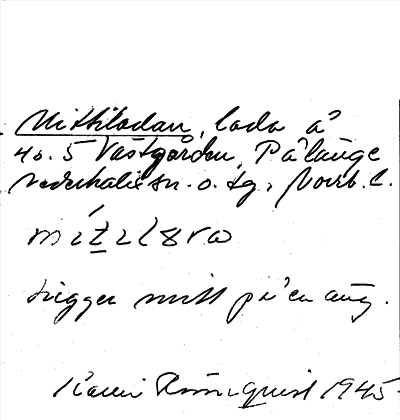 Mittiladan, lada å
4o. 5 Västgården, Pålänge
Nederkalix sn. o. tg., Norrb. l.
ligger mitt på en äng.
Karin Rönnquist 1945